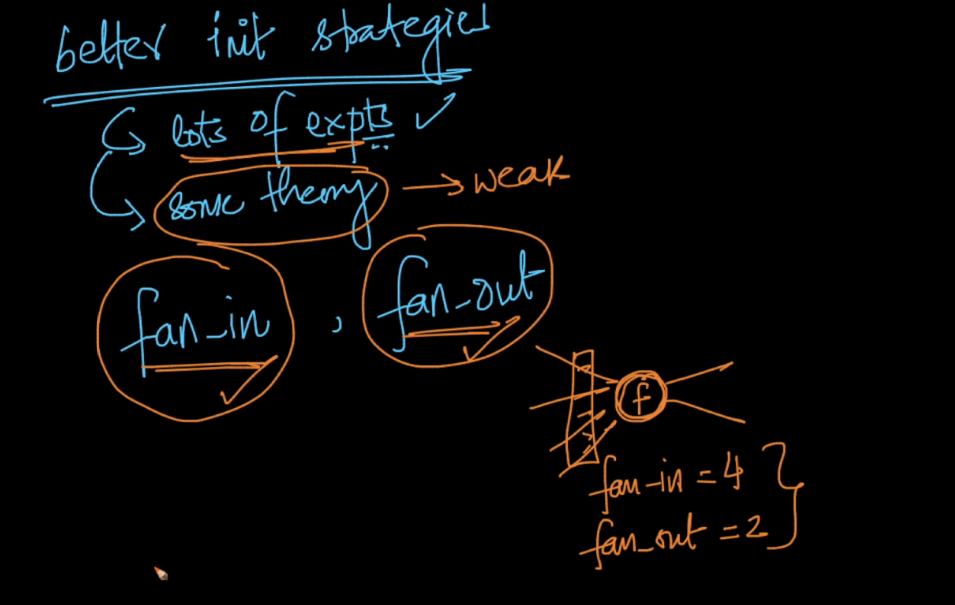 better init strategies
lots of expts
some theory → weak
fan_in , fan_out
f
fan-in = 4
fan_out = 2